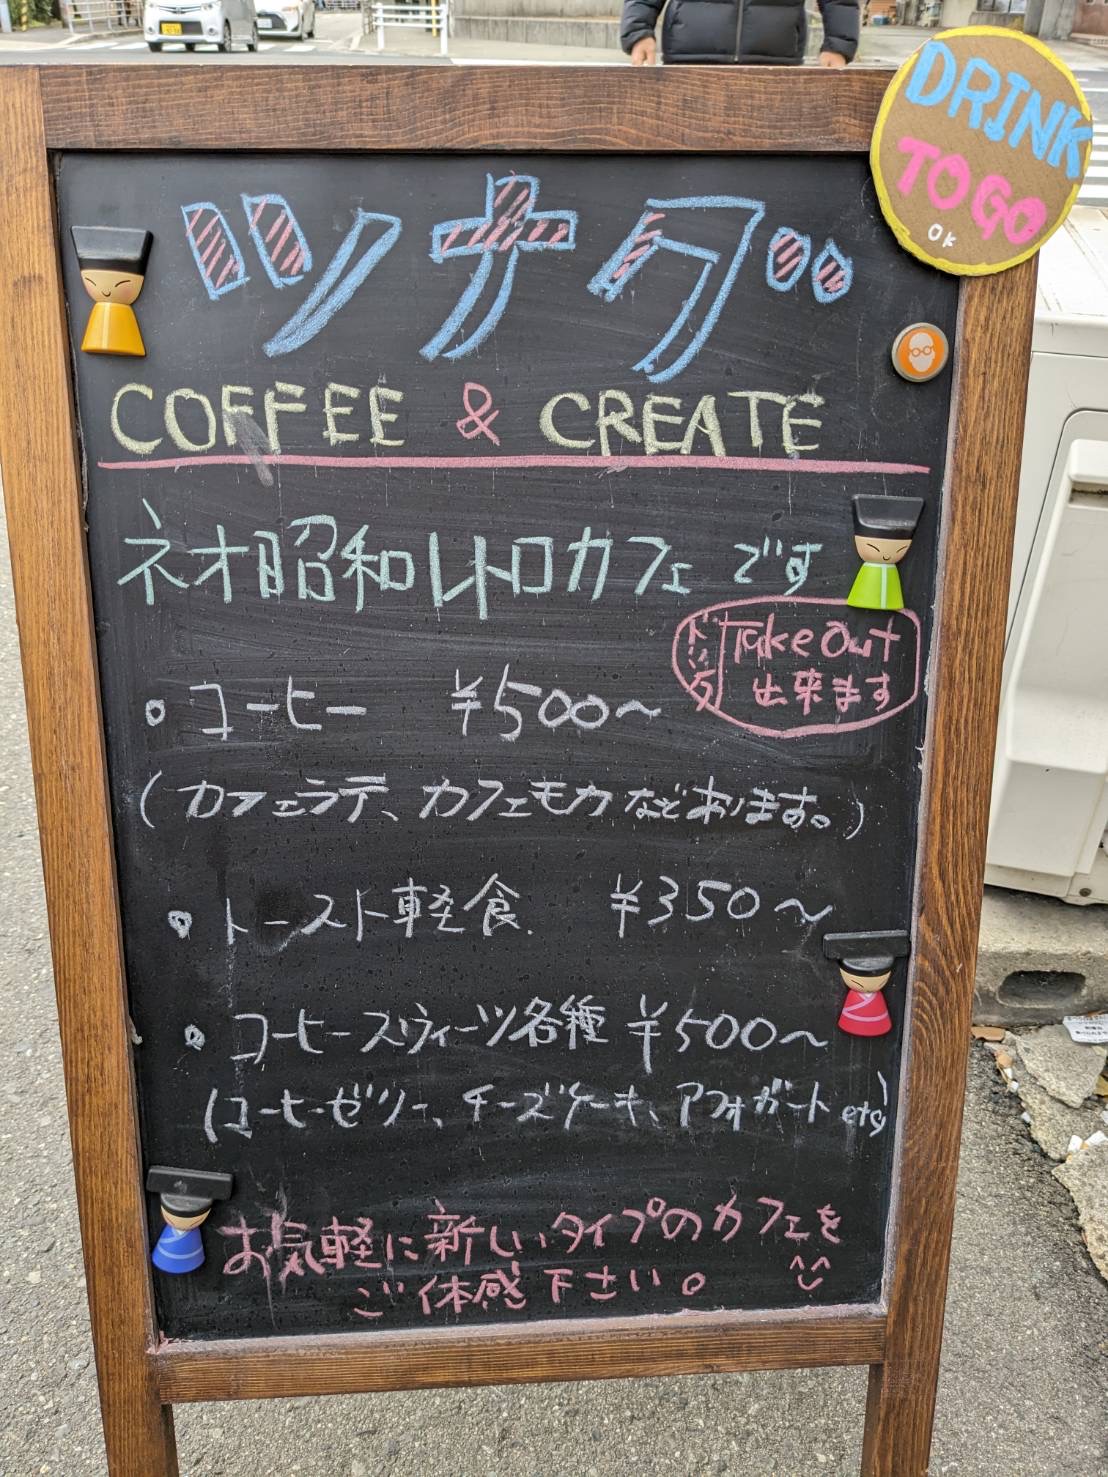 DRINK
TO GO
OK
ツナグ
COFFEE & CREATE
ネオ昭和レトロカフェです
ドリンク
Take Out
出来ます
・コーヒー ¥500〜
(カフェラテ、カフェモカなどあります。)
・トースト軽食 ¥350〜
・コーヒースウィーツ各種 ¥500〜
(コーヒーゼリー、チーズケーキ、アフォガート etc)
お気軽に新しいタイプのカフェを
ご体感下さい。